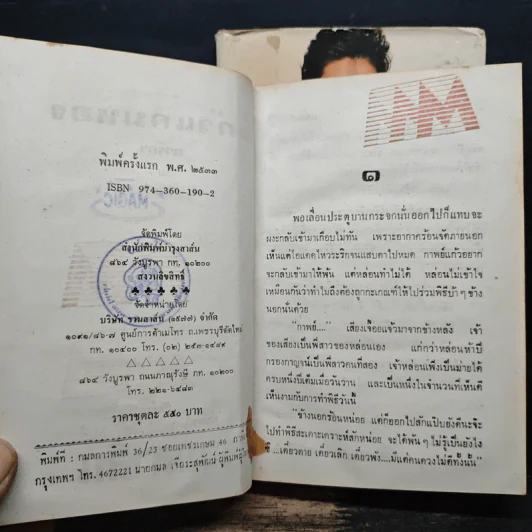 พิมพ์ครั้งแรก พ.ศ. ๒๕๓๓
ISBN 974-360-190-2
MAGIC
จัดพิมพ์โดย
สำนักพิมพ์บำรุงสาส์น
๘๖๔ วังบูรพา กท. ๑๐๒๐๐
สงวนลิขสิทธิ์
จัดจำหน่ายโดย
บริษัท รวมสาส์น (๑๙๗๗) จำกัด
ศูนย์การค้าเมโทร ถ.เพชรบุรีตัดใหม่
กท. ๑๐๔๐๐ โทร. (๐๒)
๘๖๔ วังบูรพา ถนนภาณุรังษี กท. ๑๐๒๐๐
ราคาชุดละ ๕๕๐ บาท
พิมพ์ที่ : กมลการพิมพ์ 36/23 ซอยเพชรเกษม 46
กรุงเทพฯ โทร. 4672221 นายกมล
๑
พอเลื่อนประตูบานกระจกนั่นออกไปก็แทบจะ
ผงะกลับเข้ามาเกือบไม่ทัน เพราะอากาศร้อนจัดภายนอก
จะกลับเข้ามาให้พ้น แต่หล่อนทำไม่ได้ หล่อนไม่เข้าใจ
เหมือนกันว่าทำไมถึงต้องถูกกะเกณฑ์ให้ไปร่วมพิธีบ้า ๆ ข้าง
นอกนั่นด้วย
“กาพย์...” เสียงเจื้อยแจ้วมาจากข้างหลัง เจ้า
ของเสียงเป็นพี่สาวของหล่อนเอง แก่กว่าหล่อนห้าปี
ครบหนึ่งปีเต็มเมื่อวันวาน และเป็นหนึ่งในจำนวนที่เห็นดี
เห็นงามกับการทำพิธีวันนี้
“ข้างนอกร้อนหน่อย แต่ก็ออกไปสักแป๊บยังดีนะจ๊ะ
ไปทำพิธีสะเดาะเคราะห์สักหน่อย จะได้พ้น ๆ ไม่รู้เป็นยังไง
ซี...เดี๋ยวตาย เดี๋ยวเลิก เดี๋ยวพัง...มีแต่คนดวงไม่ดีทั้งนั้น”